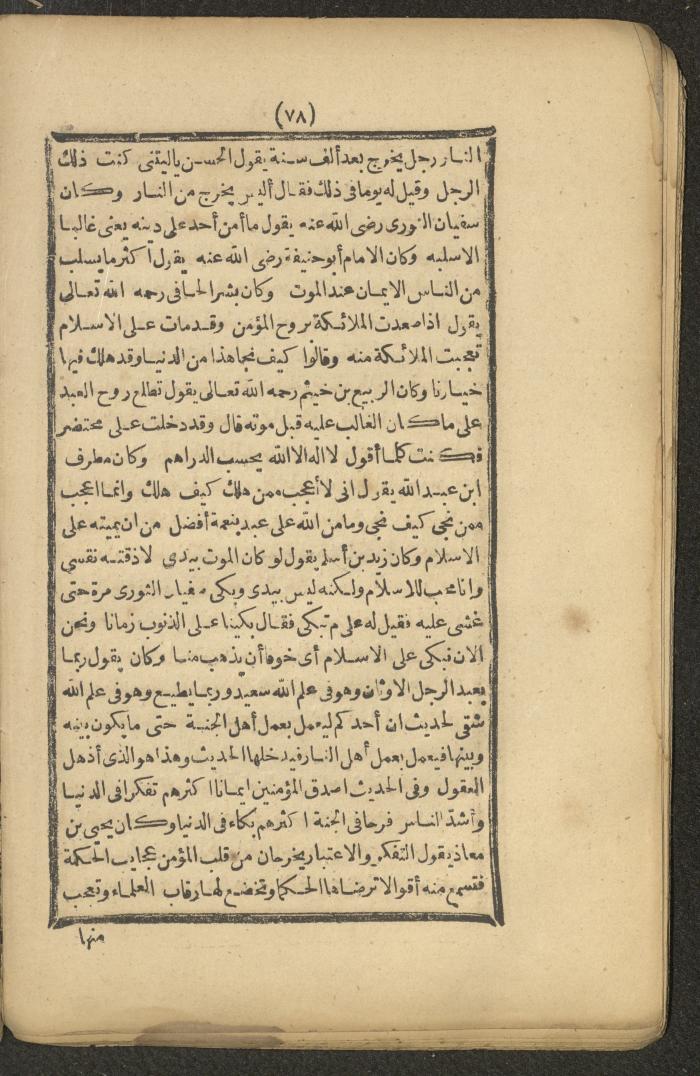 (٧٨)
النار رجل يخرج بعد ألف سنة يقول الحسن ياليتنى كنت ذلك
الرجل وقيل له يوما فى ذلك فقال أليس يخرج من النار وكان
سفيان الثورى رضى الله عنه يقول ما أمن أحد على دينه يعنى غالبا
الاسلبه وكان الامام أبو حنيفة رضى الله عنه يقول أكثر ما يسلب
من الناس الايمان عند الموت وكان بشر الحافى رحمه الله تعالى
يقول اذا صعدت الملائكة بروح المؤمن وقد مات على الاسلام
تعجبت الملائكة منه وقالوا كيف نجا هذا من الدنيا وقد هلك فيها
خيارنا وكان الربيع بن خيثم رحمه الله تعالى يقول تطلع روح العبد
على ما كان الغالب عليه قبل موته قال وقد دخلت على محتضر
فكنت كلما أقول لا اله الا الله يحسب الدراهم وكان مطرف
ابن عبد الله يقول انى لا أعجب ممن هلك كيف هلك وانما اعجب
ممن نجى كيف نجى وما من الله على عبد بنعمة أفضل من ان يميته على
الاسلام وكان زيد بن أسلم يقول لو كان الموت بيدي لاذقته نفسي
وانا محب للاسلام ولكنه ليس بيدى وبكى سفيان الثورى مرة حتى
غشى عليه فقيل له على م تبكى فقال بكينا على الذنوب زمانا ونحن
الان نبكى على الاسلام أى خوفا أن يذهب منا وكان يقول ربما
يعبد الرجل الاوثان وهو فى علم الله سعيد وربما يطيع وهو فى علم الله
شقى لحديث ان أحدكم ليعمل بعمل أهل الجنة حتى ما يكون بينه
وبينها فيعمل بعمل أهل النار فيدخلها الحديث وهذا هو الذى أذهل
العقول وفى الحديث اصدق المؤمنين ايمانا اكثرهم تفكرا فى الدنيا
وأشد الناس فرحا فى الجنة اكثرهم بكاء فى الدنيا وكان يحيى بن
معاذ يقول التفكر والاعتبار يخرجان من قلب المؤمن عجايب الحكمة
فتسمع منه أقوالا ترضاها الحكما وتخضع لها رقاب العلماء وتعجب
منها